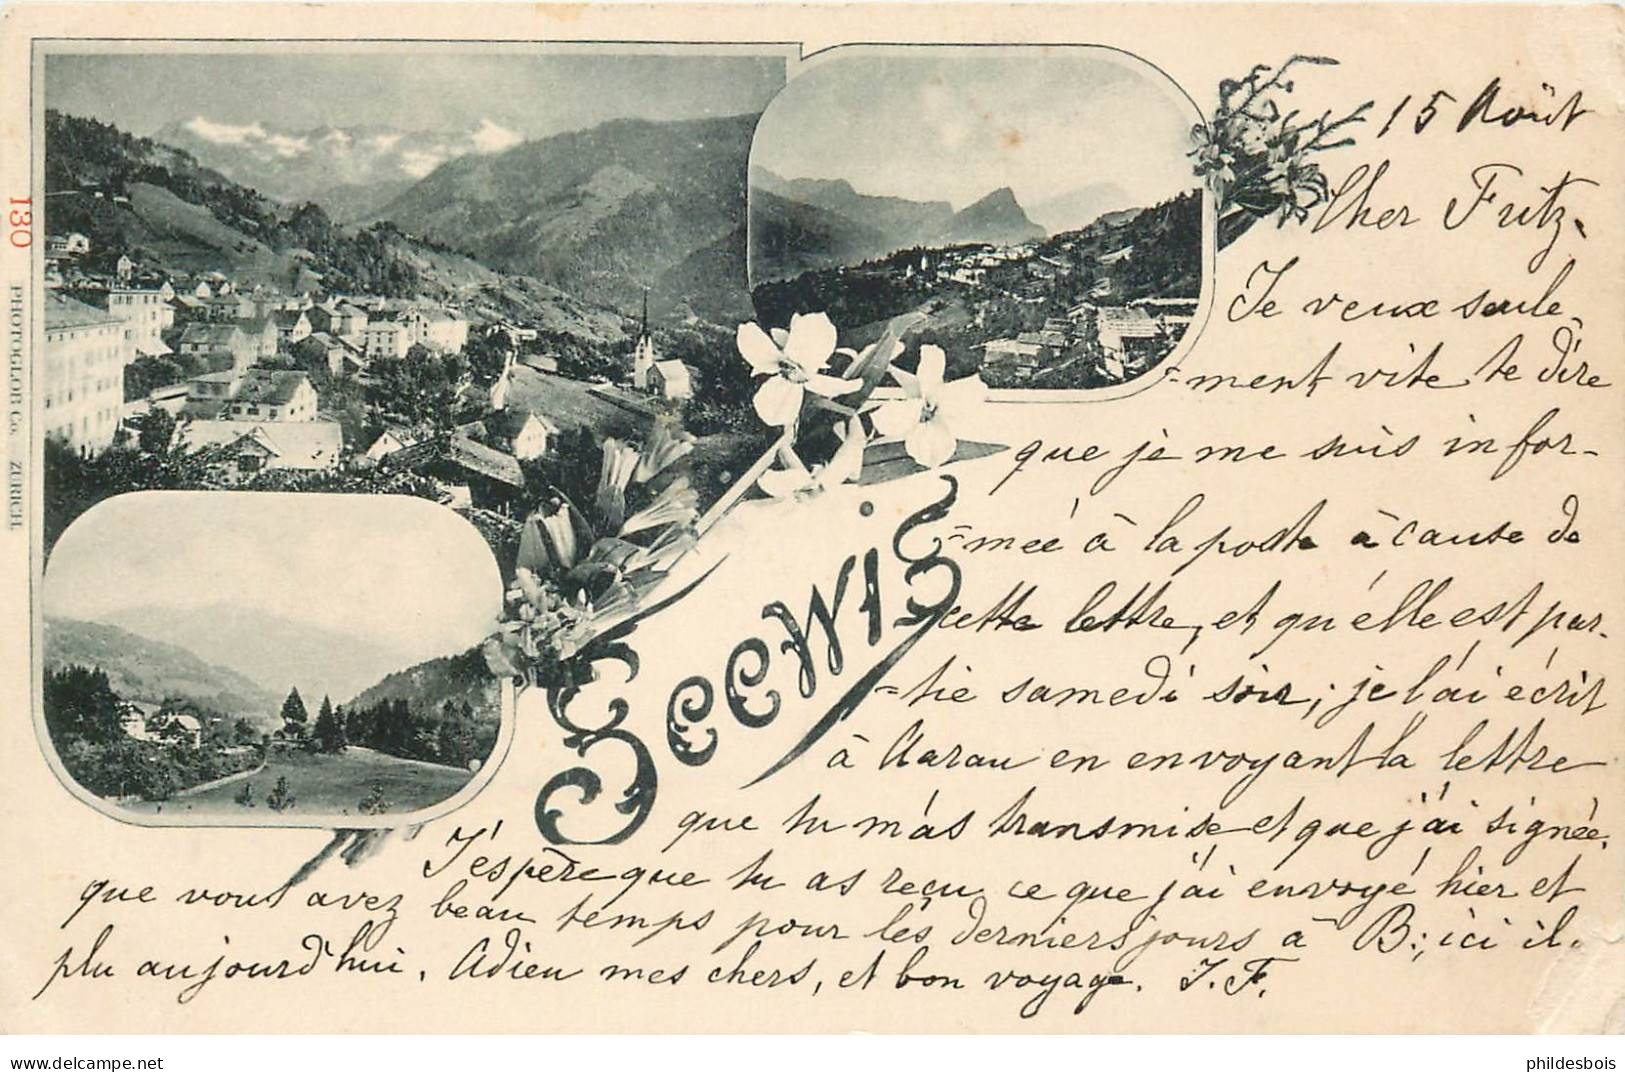 15 Août
Cher Fritz.
Je veux seule-
=ment vite te dire
que je me suis infor-
=mée à la poste à cause de
cette lettre, et qu'elle est par-
=tie samedi soir; je l'ai écrit
à Aarau en envoyant la lettre
que tu m'as transmise et que j'ai signée.
J'espère que tu as reçu ce que j'ai envoyé hier et
que vous avez beau temps pour les derniers jours à B.; ici il
plu aujourd'hui. Adieu mes chers, et bon voyage. J. F.
Seewis
130
PHOTOGLOB Co. ZÜRICH.
www.delcampe.net
phildesbois